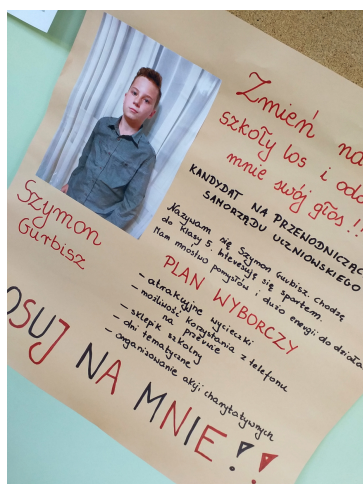 Zmień na
szkoły los i odd
mnie swój głos!!!
KANDYDAT NA PRZEWODNICZĄC
SAMORZĄDU UCZNIOWSKIEGO
Szymon
Gurbisz
Nazywam się Szymon Gurbisz. Chodzę
do klasy 5. Interesuję się sportem.
Mam mnóstwo pomysłów i dużo energii do działa
PLAN WYBORCZY
- atrakcyjne wycieczki
- możliwość korzystania z telefonu
na przerwie
- sklepik szkolny
- dni tematyczne
- organizowanie akcji charytatywnych
OSUJ NA MNIE!!